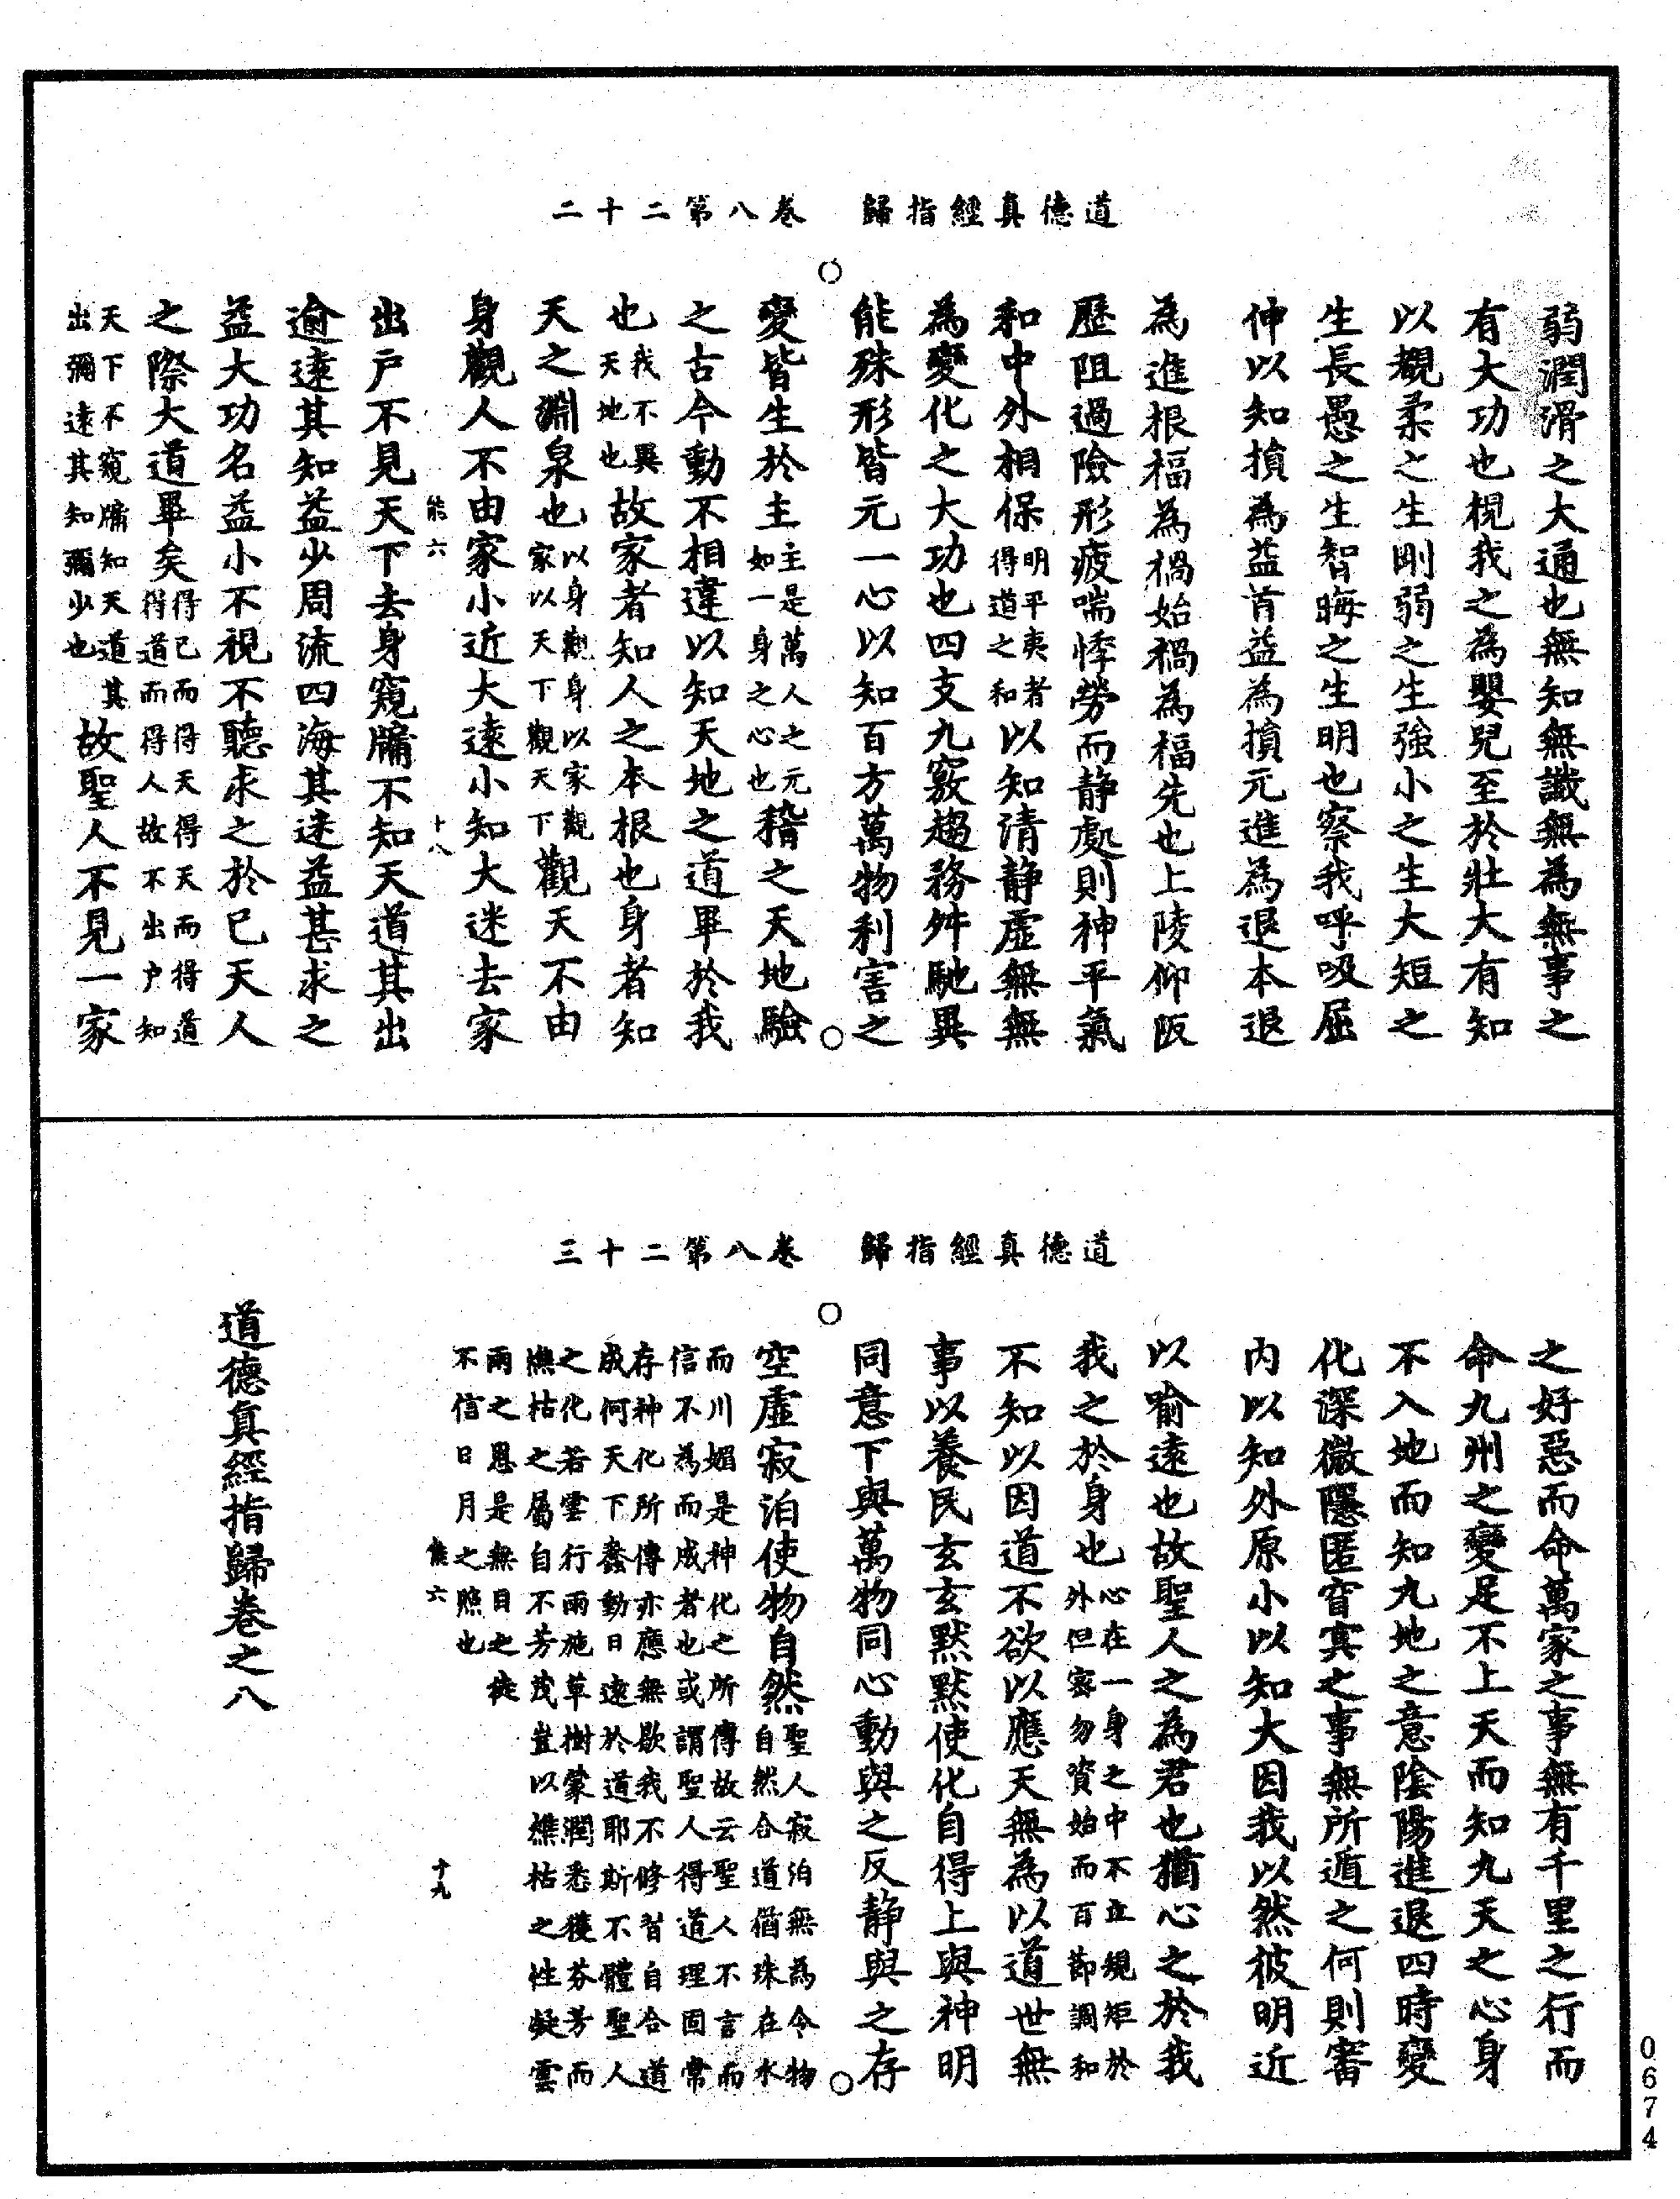 道德真經指歸　卷八第二十二
弱潤滑之大通也無知無識無為無事之
有大功也視我之為嬰兒至於壯大有知
以覩柔之生剛弱之生強小之生大短之
生長愚之生智晦之生明也察我呼吸屈
伸以知損為益首益為損元進為退本退
為進根福為禍始禍為福先也上陵仰阪
歷阻過險形疲喘悸勞而靜處則神平氣
和中外相保明平夷者得道之和以知清靜虛無無
為變化之大功也四支九竅趨務舛馳異
能殊形皆元一心以知百方萬物利害之
變皆生於主主是萬人之元如一身之心也稽之天地驗
之古今動不相違以知天地之道畢於我
也我不異天地也故家者知人之本根也身者知
天之淵泉也以身觀身以家觀家以天下觀天下觀天不由
身觀人不由家小近大遠小知大迷去家
能六　十八
出戶不見天下去身窺牖不知天道其出
逾遠其知益少周流四海其迷益甚求之
益大功名益小不視不聽求之於己天人
之際大道畢矣得己而得天得天而得道得道而得人故不出戶知
天下不窺牖知天道其出彌遠其知彌少也故聖人不見一家
道德真經指歸　卷八第二十三
之好惡而命萬家之事無有千里之行而
命九州之變足不上天而知九天之心身
不入地而知九地之意陰陽進退四時變
化深微隱匿窅冥之事無所遁之何則審
內以知外原小以知大因我以然彼明近
以喻遠也故聖人之為君也猶心之於我
我之於身也心在一身之中不立規矩於外但密勿資始而百節調和
不知以因道不欲以應天無為以道世無
事以養民玄玄默默使化自得上與神明
同意下與萬物同心動與之反靜與之存
空虛寂泊使物自然聖人寂泊無為令物自然合道猶珠在水
而川媚是神化之所傳故云聖人不言而信不為而成者也或謂聖人得道理固常
存神化所傳亦應無歇我不修習自合道成何天下蠢動日遠於道耶斯不體聖人
之化若雲行雨施草樹蒙潤悉獲芬芳而憔枯之屬自不芳茂豈以憔枯之性疑雲
雨之恩是無目之徒不信日月之照也
能六　十九
道德真經指歸卷之八
0674